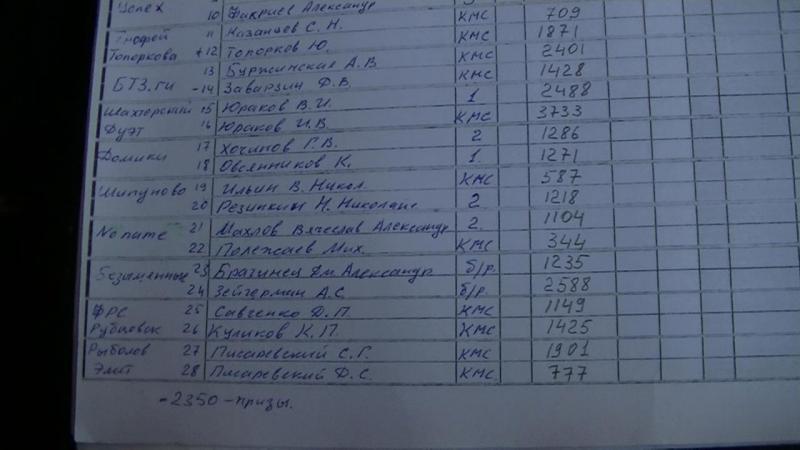 Успех 10 Фикриев Александр КМС 709
Трофей 11 Казанцев С. Н. КМС 1871
Топоркова 12 Топорков Ю. КМС 2401
13 Буржинская А. В КМС 1428
БТЗ.ги -14 Заварзин Ф.В. 1 2488
Шахтерский 15 Юраков В.И. КМС 3733
Дуэт 16 Юраков И.В 2 1286
Домики 17 Хочинов Г. В. 1. 1271
18 Овсянников К.
Шипуново 19 Ильин В. Никол. КМС 587
20 Резинкин Н. Николаев 2. 1218
No name 21 Махлов Вячеслав Александр 2. 1104
22 Полежаев Мих. КМС 344
Безымянные 23 Брагинец Дм. Александр б/р. 1235
24 Зейгерман А.С. б/р. 2588
ФРС 25 Савченко Д. П. КМС 1149
Рубцовск 26 Куликов К. П. КМС 1425
Рыболов 27 Писаревский С. Г. КМС 1901
Элит 28 Писаревский Ф. С. КМС 777
-2350-призы.